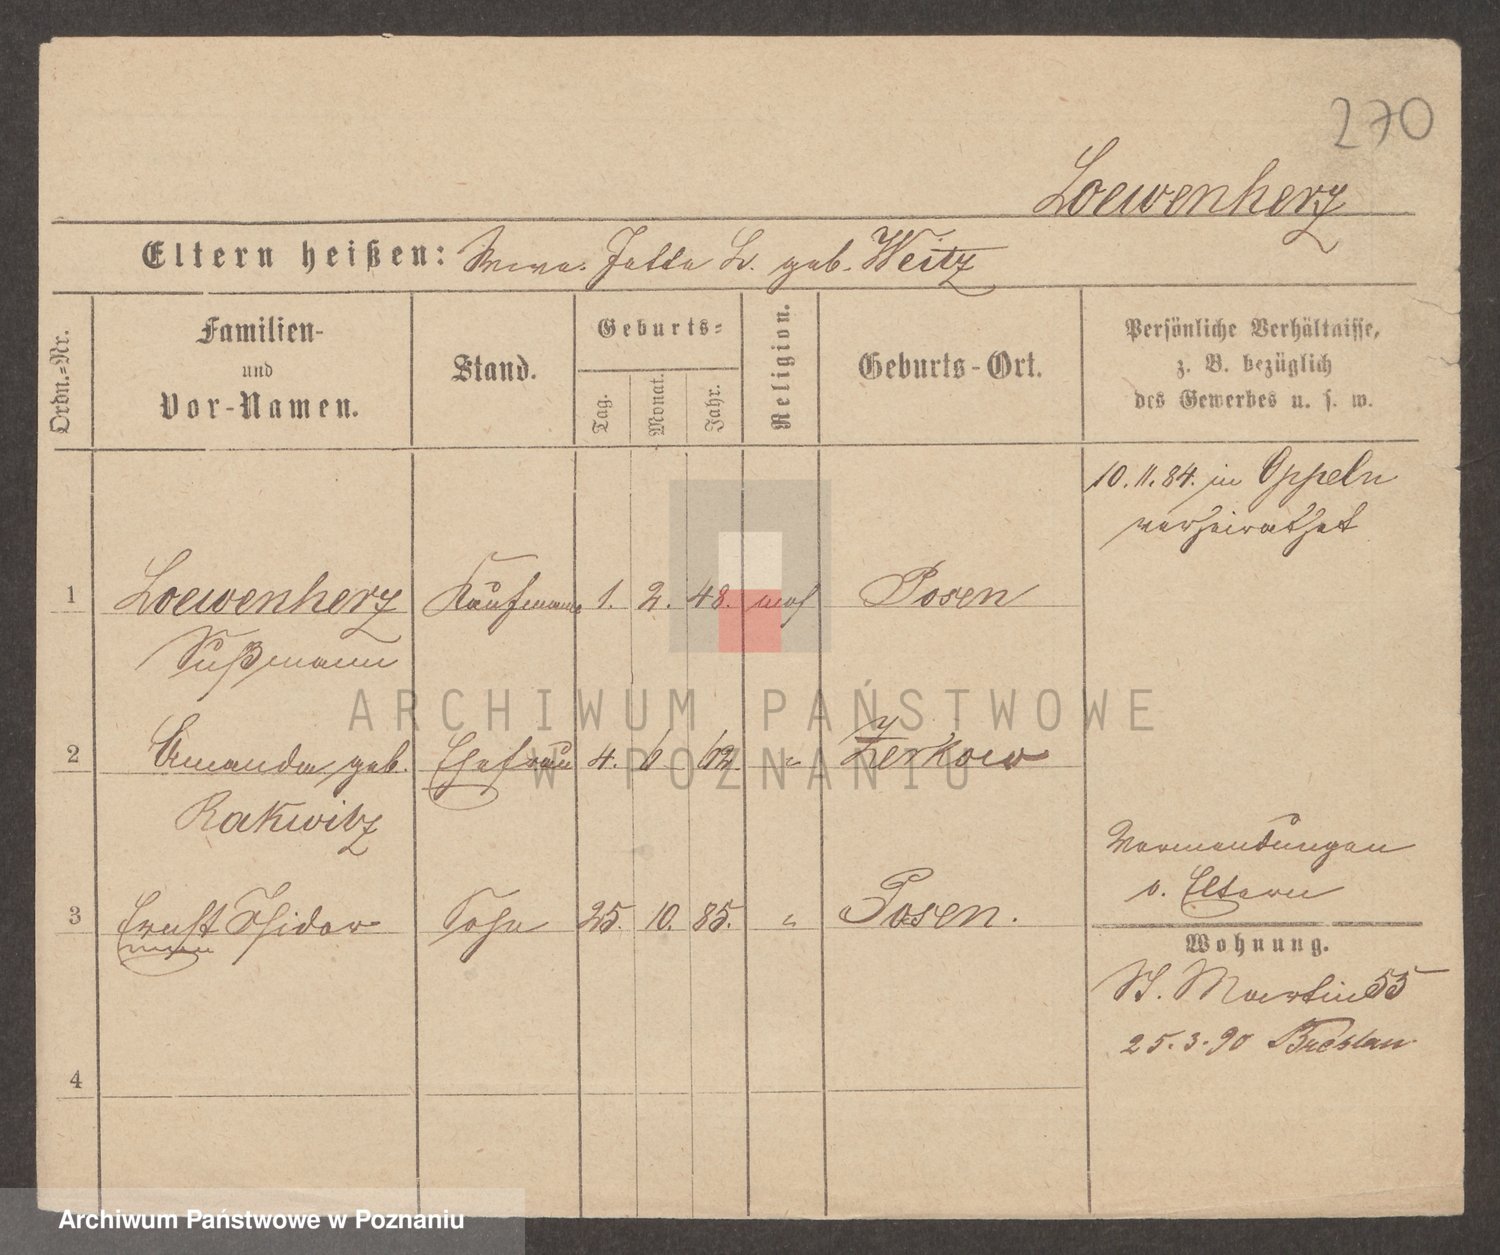 270
Loewenherz
Eltern heißen: Wwe. Jette L. geb. Weitz
Ordn.=Nr.
Familien-
und
Vor-Namen.
Stand.
Geburts=
Tag.
Monat.
Jahr.
Religion.
Geburts-Ort.
Persönliche Verhältnisse,
z. B. bezüglich
des Gewerbes u. s. w.
10. 11. 84. in Oppeln
verheirathet
1 Loewenherz Kaufmann 1. 2. 48. mos Posen
Sußmann
2 Amanda geb. Ehefrau 4. 6 62. " Zerkow
Rakwitz
3 Ernst Isidor Sohn 25. 10. 85. " Posen.
4
v. Eltern
Wohnung.
St. Martin 55
25. 3. 90 Breslau
ARCHIWUM PAŃSTWOWE
W POZNANIU
Archiwum Państwowe w Poznaniu